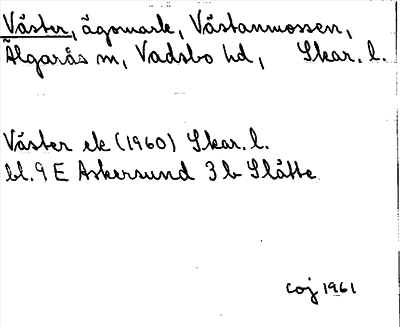 Väster, ägomark, Västanmossen,
Älgarås sn, Vadsbo hd, Skar. l.
Väster ek (1960) Skar. l.
bl. 9 E Askersund 3 b Slätte
coj 1961